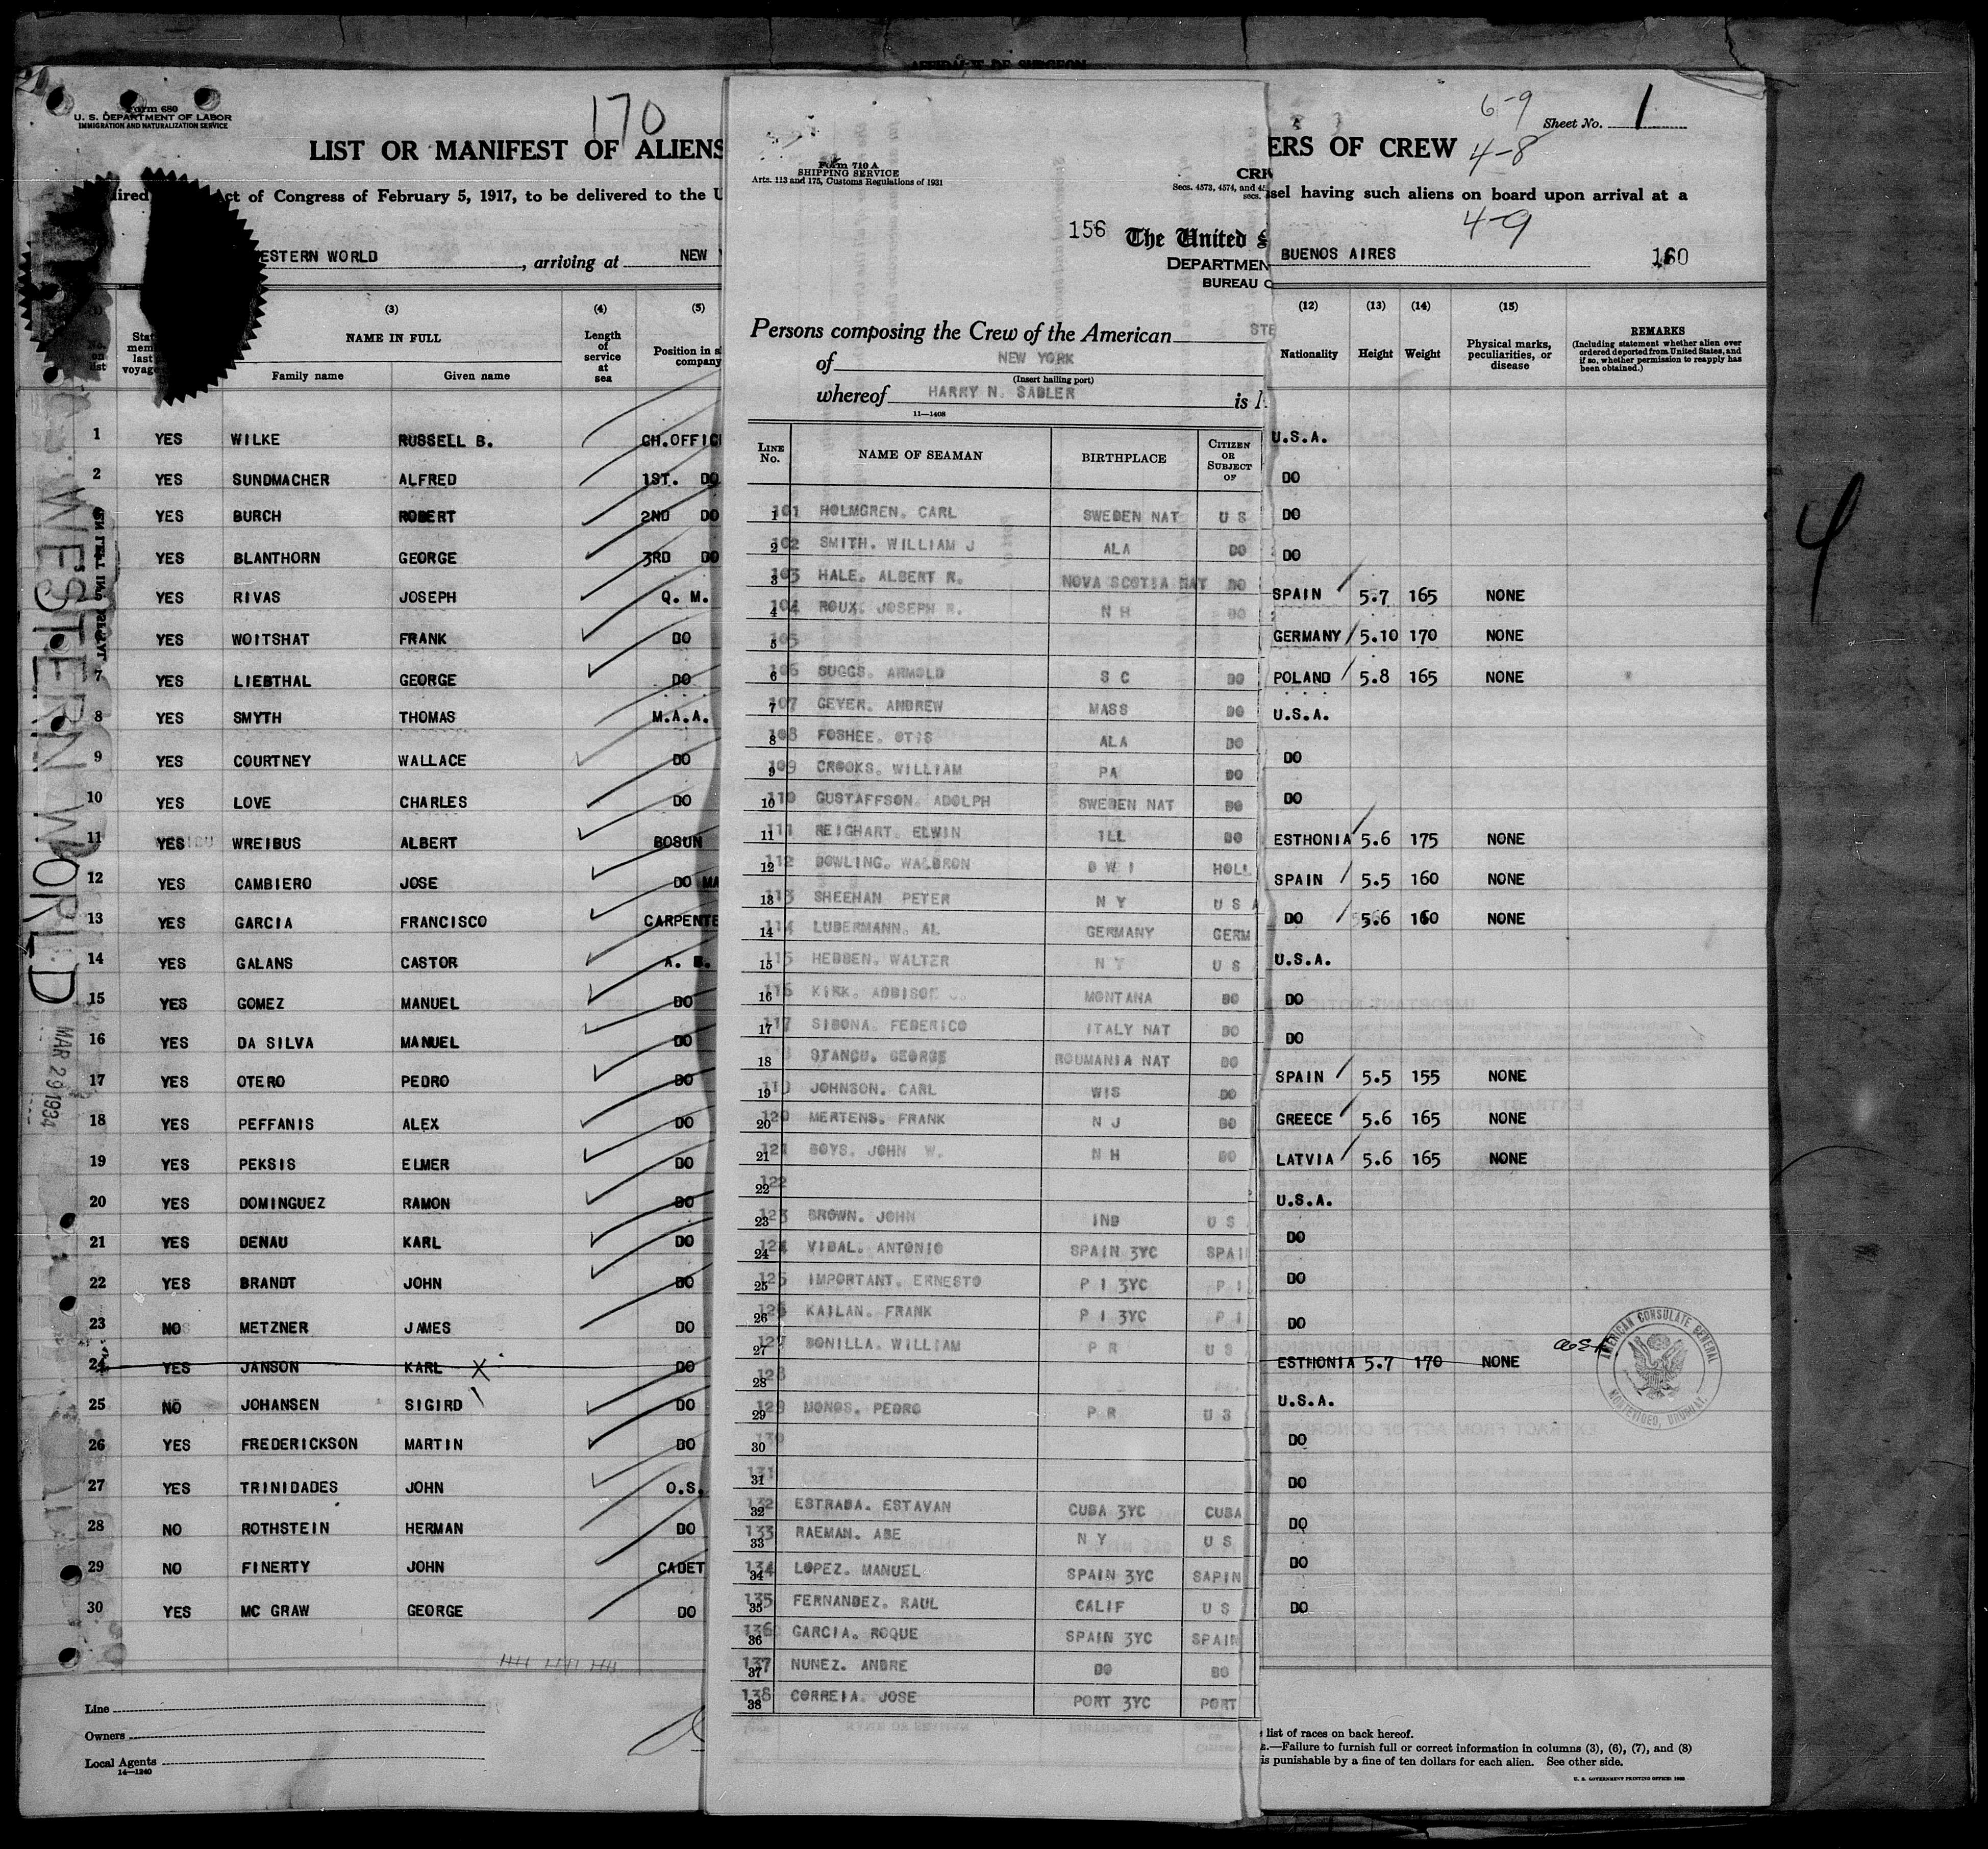 AFFIDAVIT OF SURGEON
Form 680
U. S. DEPARTMENT OF LABOR
IMMIGRATION AND NATURALIZATION SERVICE
170
LIST OR MANIFEST OF ALIENS
ired ct of Congress of February 5, 1917, to be delivered to the U
ESTERN WORLD , arriving at NEW
(3) (4) (5)
No. on list
NAME IN FULL
Length of service at sea
Position in s company
Family name Given name
1 YES WILKE RUSSELL B. CH.OFFIC
2 YES SUNDMACHER ALFRED 1ST. DO
YES BURCH ROBERT 2ND DO
YES BLANTHORN GEORGE 3RD DO
YES RIVAS JOSEPH Q. M.
YES WOITSHAT FRANK DO
7 YES LIEBTHAL GEORGE DO
8 YES SMYTH THOMAS M.A.A.
9 YES COURTNEY WALLACE DO
10 YES LOVE CHARLES DO
11 YES WREIBUS ALBERT BOSUN
12 YES CAMBIERO JOSE DO MA
13 YES GARCIA FRANCISCO CARPENTE
14 YES GALANS CASTOR A. B.
15 YES GOMEZ MANUEL DO
16 YES DA SILVA MANUEL DO
17 YES OTERO PEDRO DO
18 YES PEFFANIS ALEX DO
19 YES PEKSIS ELMER DO
20 YES DOMINGUEZ RAMON DO
21 YES DENAU KARL DO
22 YES BRANDT JOHN DO
23 NO METZNER JAMES DO
24 YES JANSON KARL X DO
25 NO JOHANSEN SIGIRD DO
26 YES FREDERICKSON MARTIN DO
27 YES TRINIDADES JOHN O.S.
28 NO ROTHSTEIN HERMAN DO
29 NO FINERTY JOHN CADET
30 YES MC GRAW GEORGE DO
Line
Owners
Local Agents
14—1240
WESTERN WORLD
MAR 29 1934
Form 710 A
SHIPPING SERVICE
Arts. 113 and 175, Customs Regulations of 1931
CR
Secs. 4573, 4574, and 45
secs.
156 The United S
DEPARTMEN
BUREAU O
Persons composing the Crew of the American STE
of NEW YORK
(Insert hailing port)
whereof HARRY N. SADLER is M
11—1408
LINE No. NAME OF SEAMAN BIRTHPLACE CITIZEN OR SUBJECT OF
1 101 HOLMGREN. CARL SWEDEN NAT U S
2 102 SMITH. WILLIAM J ALA DO
3 103 HALE. ALBERT R. NOVA SCOTIA NAT DO
4 104 ROUX. JOSEPH R. N H DO
5 105
6 106 SUGGS. ARNOLD S C DO
7 107 GEYER. ANDREW MASS DO
8 108 FOSHEE. OTIS ALA DO
9 109 CROOKS. WILLIAM PA DO
10 110 GUSTAFFSON. ADOLPH SWEDEN NAT DO
11 111 REIGHART. ELWIN ILL DO
12 112 DOWLING. WALDRON D W I HOLL
13 113 SHEEHAN PETER N Y U S A
14 114 LUBERMANN. AL GERMANY GERM
15 115 HEBBEN. WALTER N Y U S
16 116 KIRK. ADDISON MONTANA DO
17 117 SIBONA. FEDERICO ITALY NAT DO
18 STANCU. GEORGE ROUMANIA NAT DO
19 119 JOHNSON. CARL WIS DO
20 120 MERTENS. FRANK N J DO
21 121 BOYS. JOHN W. N H DO
22 122
23 123 BROWN. JOHN IND U S
24 124 VIDAL. ANTONIO SPAIN 3YC SPAI
25 125 IMPORTANT. ERNESTO P I 3YC P I
26 126 KAILAN. FRANK P I 3YC P I
27 127 BONILLA. WILLIAM P R U S
28 128
29 129 MONOS. PEDRO P R U S
30 130
31 131
32 132 ESTRADA. ESTAVAN CUBA 3YC CUBA
33 133 RAEMAN. ABE N Y U S
34 134 LOPEZ. MANUEL SPAIN 3YC SAPIN
35 135 FERNANDEZ. RAUL CALIF U S
36 136 GARCIA. ROQUE SPAIN 3YC SPAIN
37 137 NUNEZ. ANDRE DO DO
38 138 CORREIA. JOSE PORT 3YC PORT
6-9
Sheet No. 1
ERS OF CREW 4-8
sel having such aliens on board upon arrival at a
4-9
BUENOS AIRES 160
(12) (13) (14) (15)
Nationality Height Weight Physical marks, peculiarities, or disease
REMARKS
(Including statement whether alien ever ordered deported from United States, and if so, whether permission to reapply has been obtained.)
U.S.A.
DO
DO
DO
SPAIN 5.7 165 NONE
GERMANY 5.10 170 NONE
POLAND 5.8 165 NONE
U.S.A.
DO
DO
ESTHONIA 5.6 175 NONE
SPAIN 5.5 160 NONE
DO 5.6 160 NONE
U.S.A.
DO
DO
SPAIN 5.5 155 NONE
GREECE 5.6 165 NONE
LATVIA 5.6 165 NONE
U.S.A.
DO
DO
DO
ESTHONIA 5.7 170 NONE
U.S.A.
DO
DO
DO
DO
DO
AMERICAN CONSULATE GENERAL
MONTEVIDEO, URUGUAY.
list of races on back hereof.
.—Failure to furnish full or correct information in columns (3), (6), (7), and (8)
is punishable by a fine of ten dollars for each alien. See other side.
U. S. GOVERNMENT PRINTING OFFICE
4